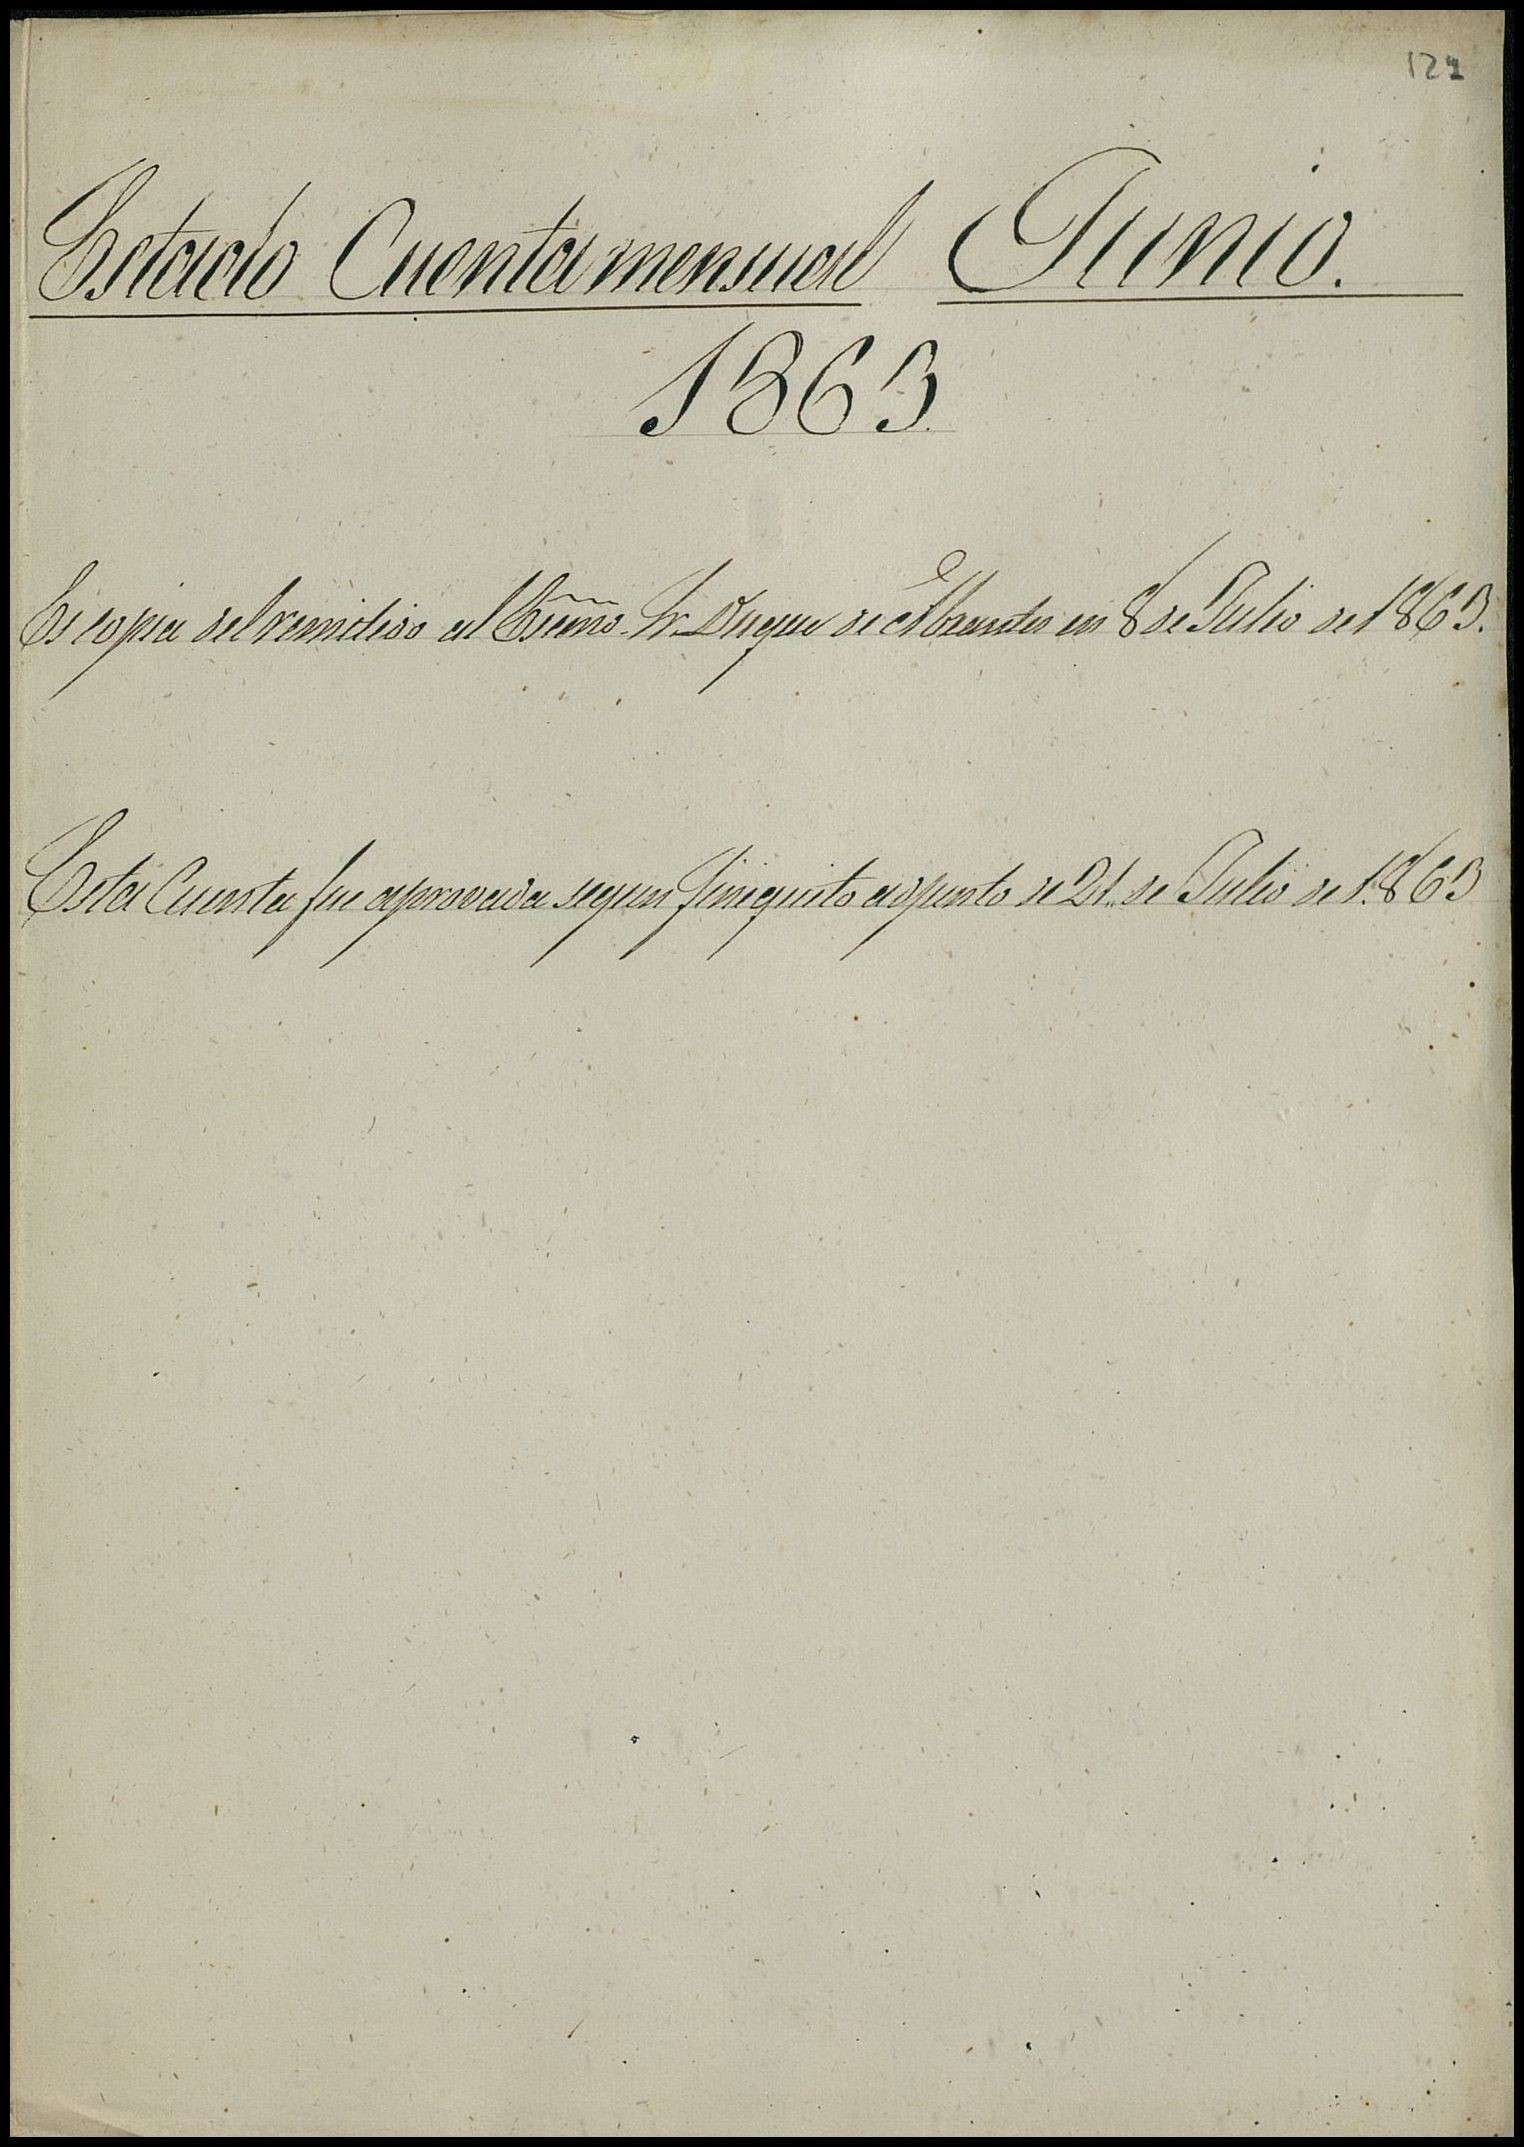 127
Estado Cuenta mensual Junio.
1863
Es copia del remitido al Excmo. Sr. Duque de Abrantes en 8 de Julio de 1863.
Esta Cuenta fue aprovada segun finiquito adjunto de 21 de Julio de 1.863